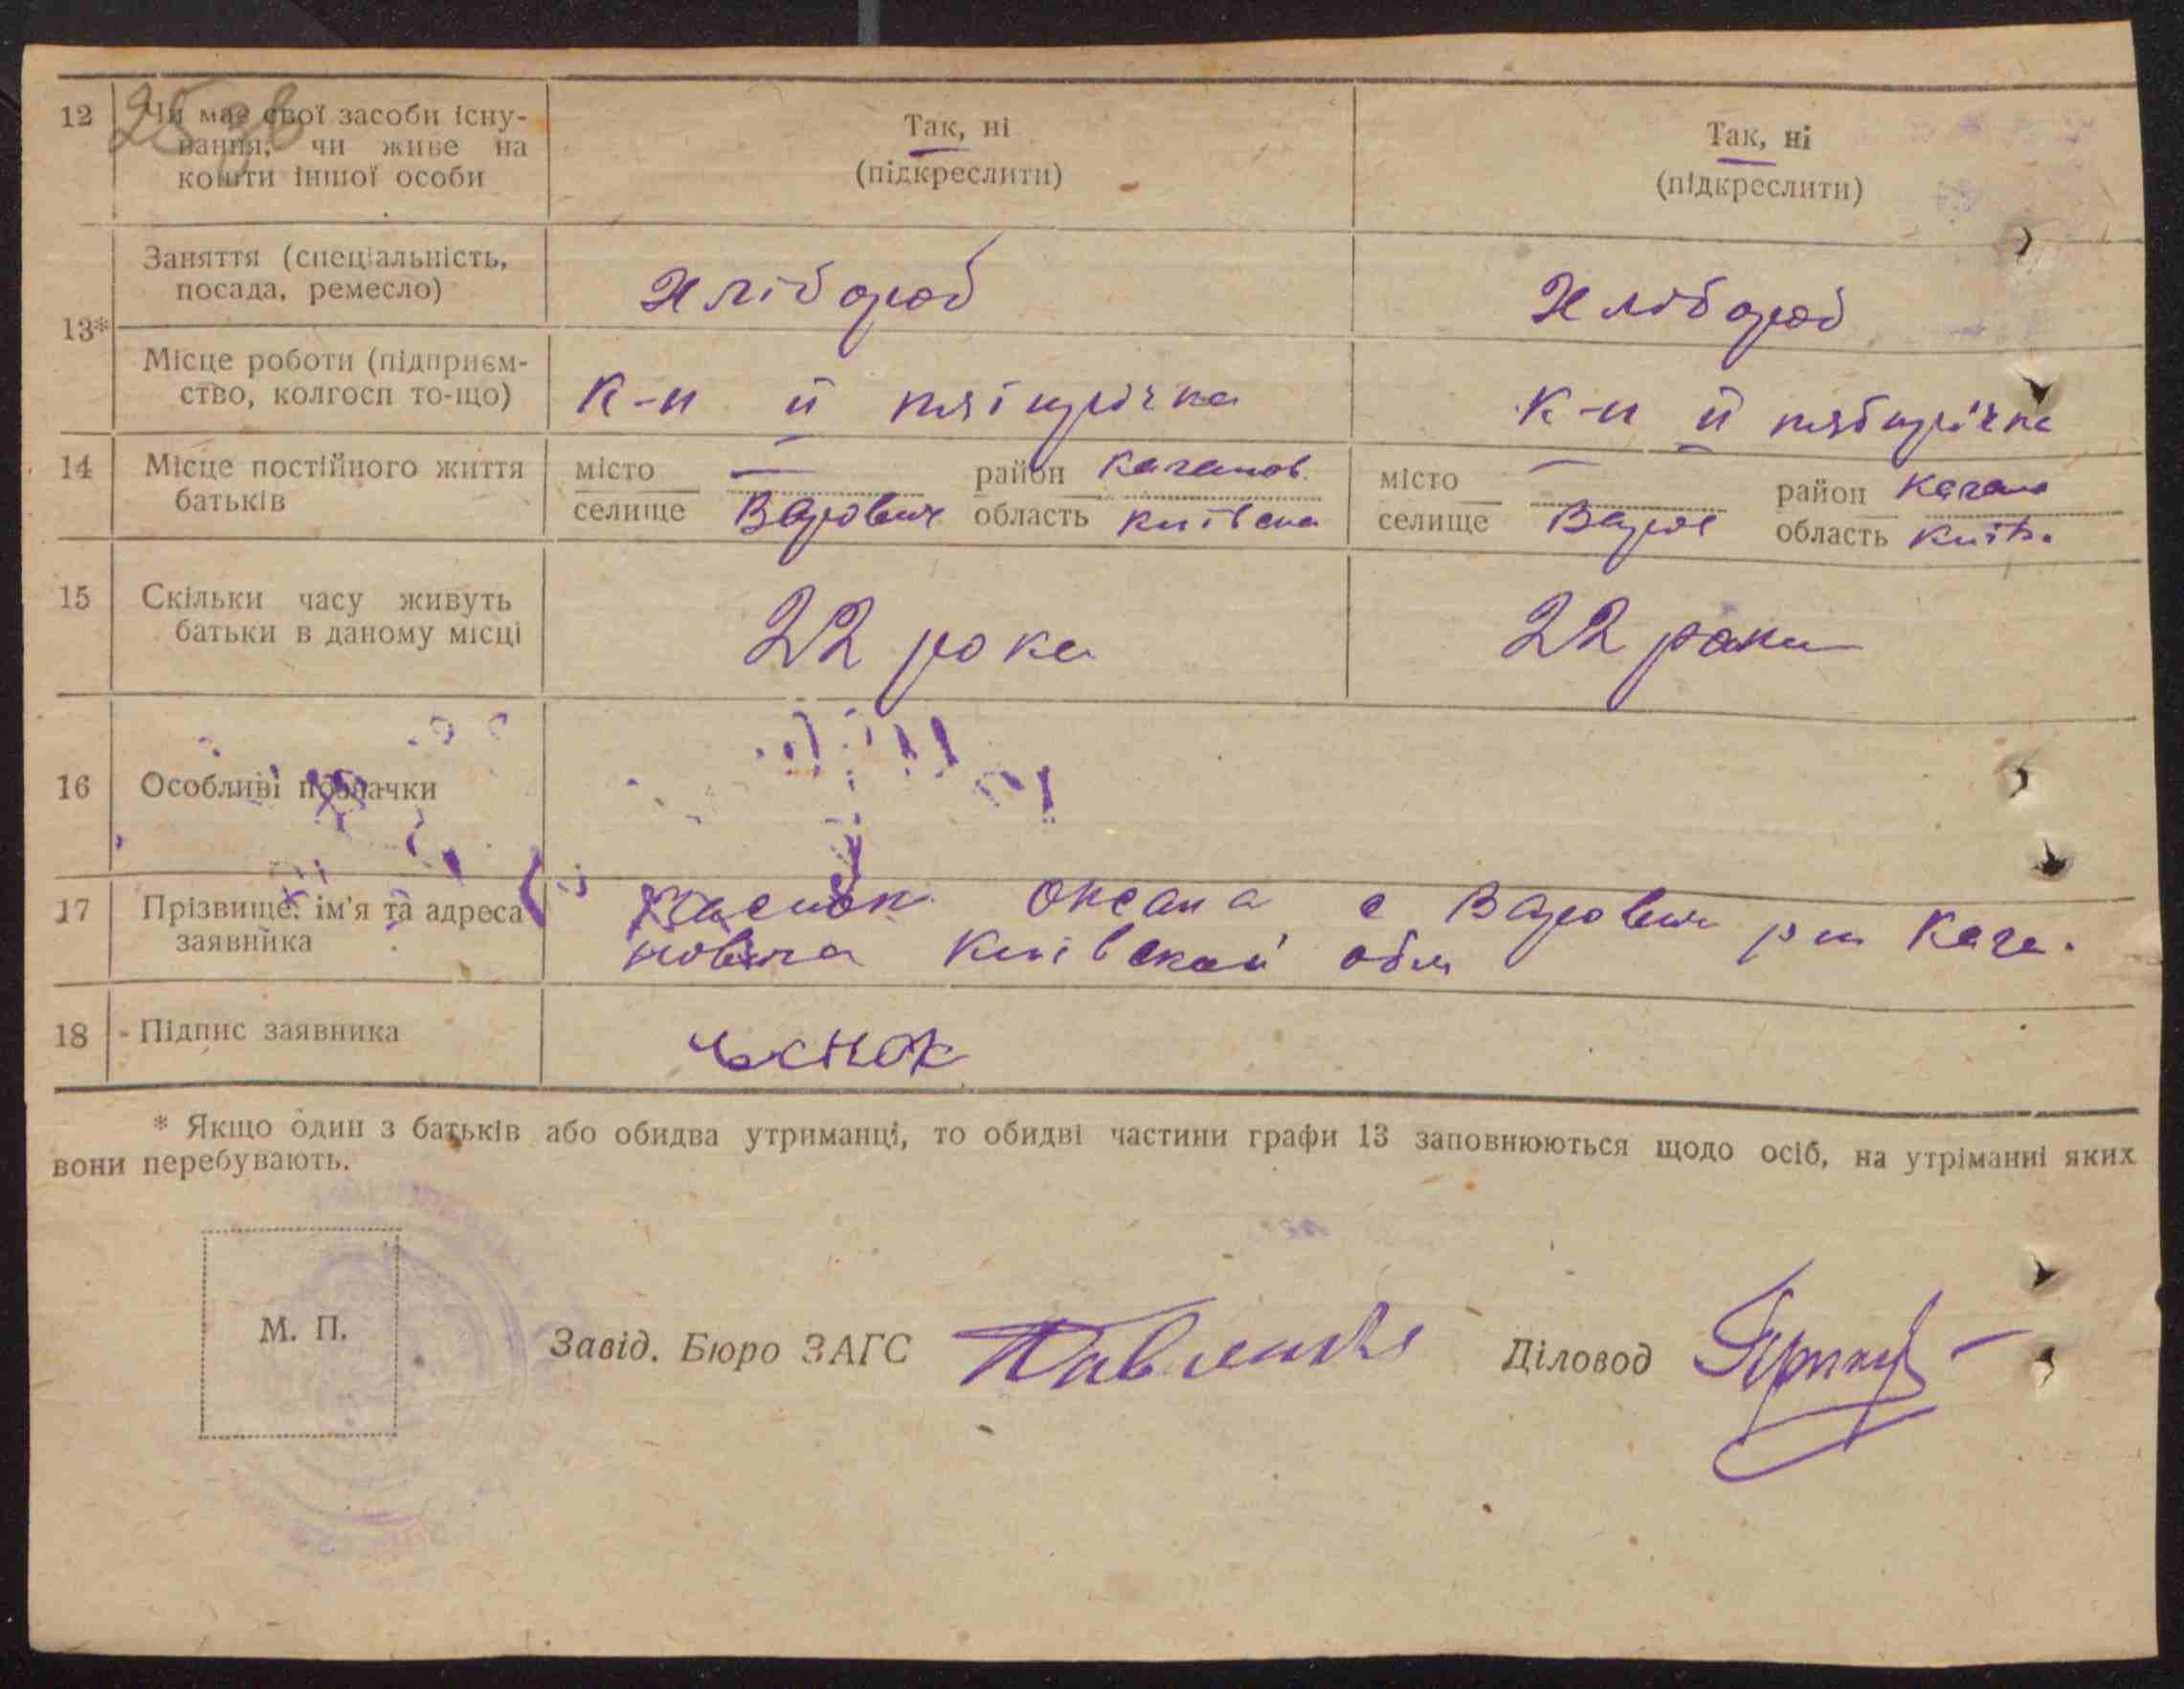 12 Чи має свої засоби існу-
вання, чи живе на
кошти іншої особи
Так, ні
(підкреслити)
Так, ні
(підкреслити)
13*
Заняття (спеціальність,
посада, ремесло)
Хлібороб
Хлібороб
Місце роботи (підприєм-
ство, колгосп то-що)
К-п ІІ пятирічка
К-п ІІ пятирічка
14 Місце постійного життя
батьків
місто —
район Каганов.
селище Варовичі
область Київска
місто —
район Кагано
селище Варов
область Київ.
15 Скільки часу живуть
батьки в даному місці
22 роки
22 роки
16 Особливі позначки
17 Прізвище, ім'я та адреса
заявника
Оксана с Варовичі р-н Кага-
новича Київской обл
18 Підпис заявника
* Якщо один з батьків або обидва утриманці, то обидві частини графи 13 заповнюються щодо осіб, на утріманні яких
вони перебувають.
М. П.
Завід. Бюро ЗАГС
Діловод